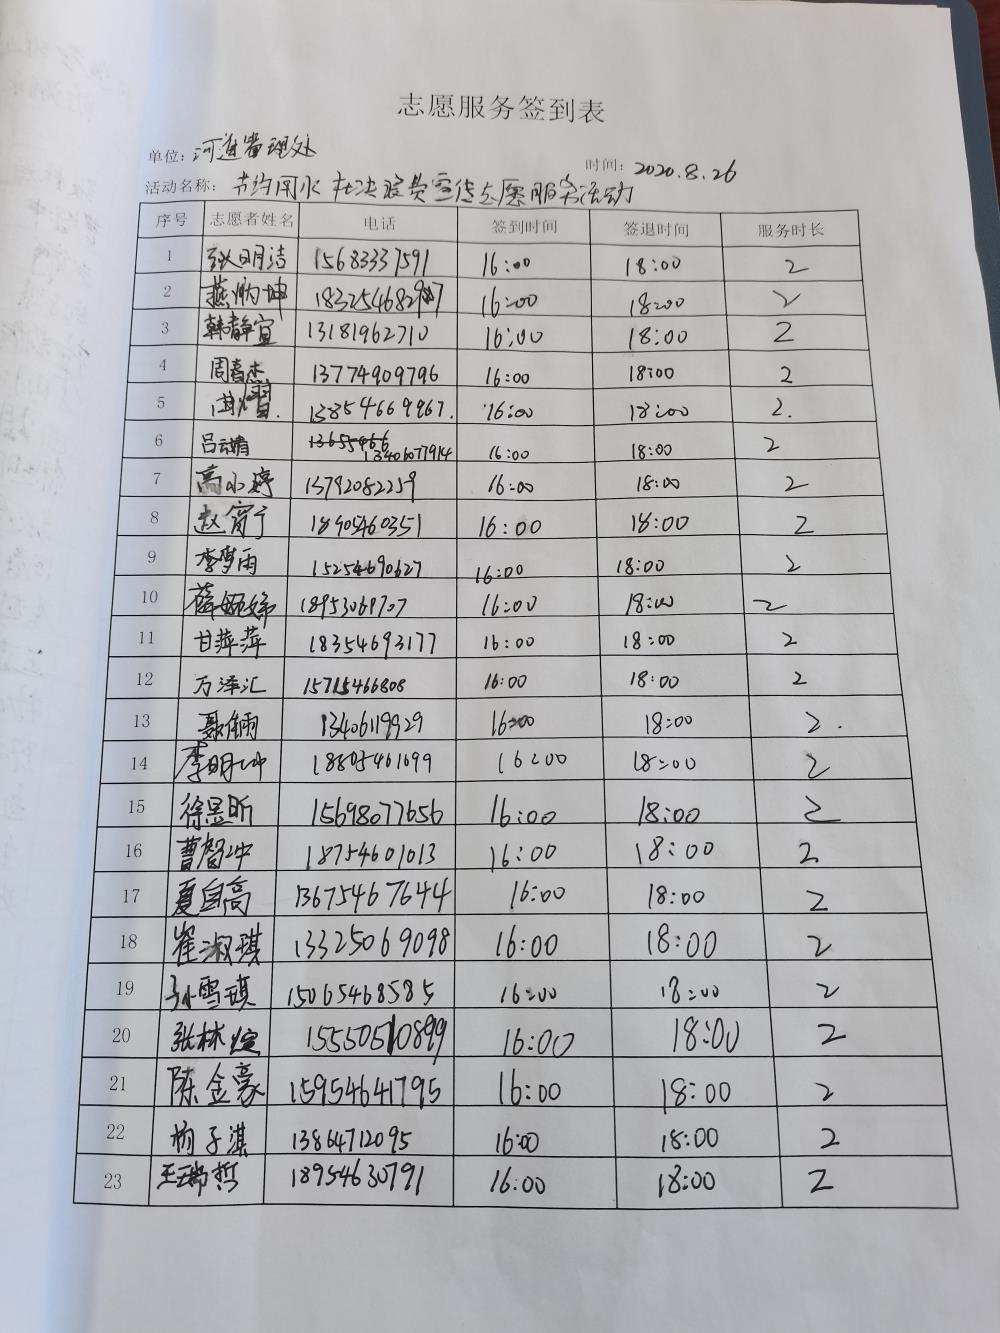 志愿服务签到表
单位：河道管理处
时间：2020.8.26
活动名称：节约用水 杜决浪费宣传志愿服务活动
序号 志愿者姓名 电话 签到时间 签退时间 服务时长
1 张明洁 15683337591 16:00 18:00 2
2 燕炳坤 16:00 18:00 2
3 韩静宜 13181962710 16:00 18:00 2
4 周嘉杰 13774909796 16:00 18:00 2
5 13854669967. 16:00 18:00 2.
6 吕云婧 13655466 13406077914 16:00 18:00 2
7 高小婷 13792082259 16:00 18:00 2
8 赵宵宁 18905460351 16:00 18:00 2
9 李梦雨 15254690627 16:00 18:00 2
10 薛婉婷 16:00 18:00 2
11 甘萍萍 18354693177 16:00 18:00 2
12 万泽汇 15715466808 16:00 18:00 2
13 13406119929 16:00 18:00 2.
14 李明坤 18805461699 16:00 18:00 2
15 徐昱昕 15698077656 16:00 18:00 2
16 曹智冲 18754601013 16:00 18:00 2
17 夏自高 13675467644 16:00 18:00 2
18 崔淑琪 13325069098 16:00 18:00 2
19 孙雪琪 15065468585 16:00 18:00 2
20 张林煊 15550510899 16:00 18:00 2
21 陈金豪 15954641795 16:00 18:00 2
22 杨子淇 13864712095 16:00 18:00 2
23 王瑞哲 18954630791 16:00 18:00 2